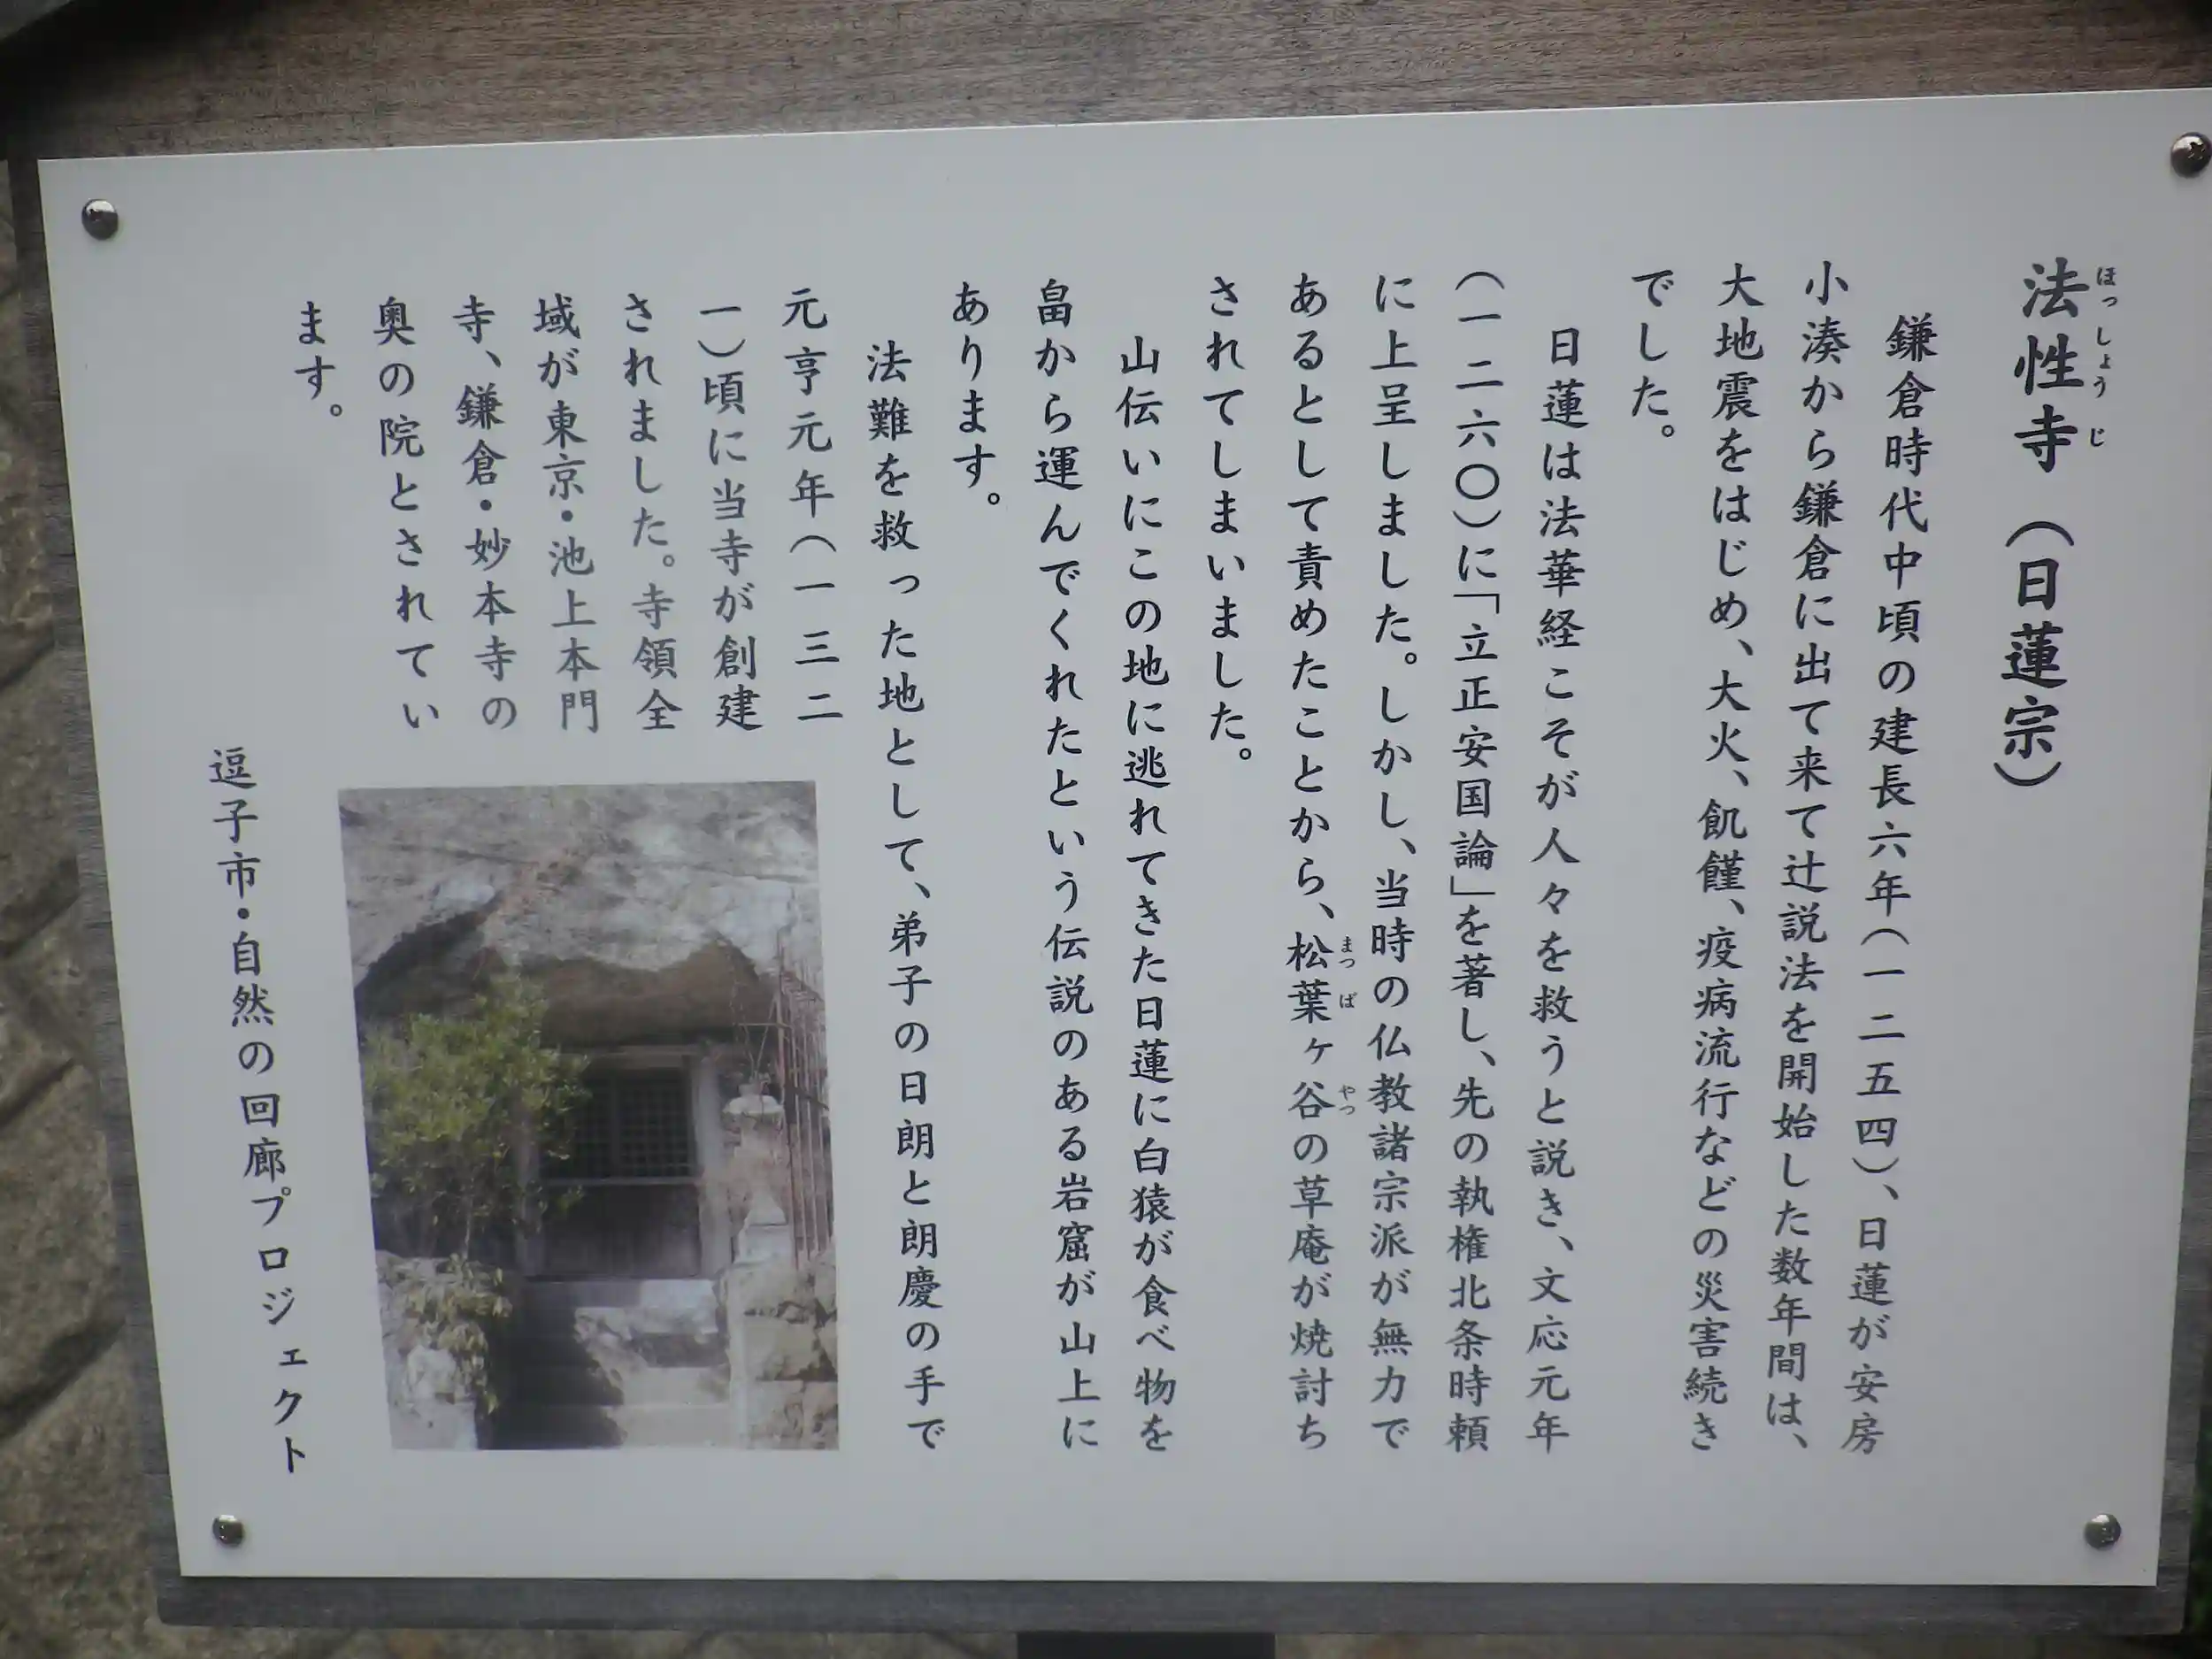 法性寺（日蓮宗）
ほっしょうじ
鎌倉時代中頃の建長六年（一二五四）、日蓮が安房
小湊から鎌倉に出て来て辻説法を開始した数年間は、
大地震をはじめ、大火、飢饉、疫病流行などの災害続き
でした。
日蓮は法華経こそが人々を救うと説き、文応元年
（一二六〇）に「立正安国論」を著し、先の執権北条時頼
に上呈しました。しかし、当時の仏教諸宗派が無力で
あるとして責めたことから、松葉ヶ谷の草庵が焼討ち
まつばやつ
されてしまいました。
山伝いにこの地に逃れてきた日蓮に白猿が食べ物を
畠から運んでくれたという伝説のある岩窟が山上に
あります。
法難を救った地として、弟子の日朗と朗慶の手で
元亨元年（一三二
一）頃に当寺が創建
されました。寺領全
域が東京・池上本門
寺、鎌倉・妙本寺の
奥の院とされてい
ます。
逗子市・自然の回廊プロジェクト